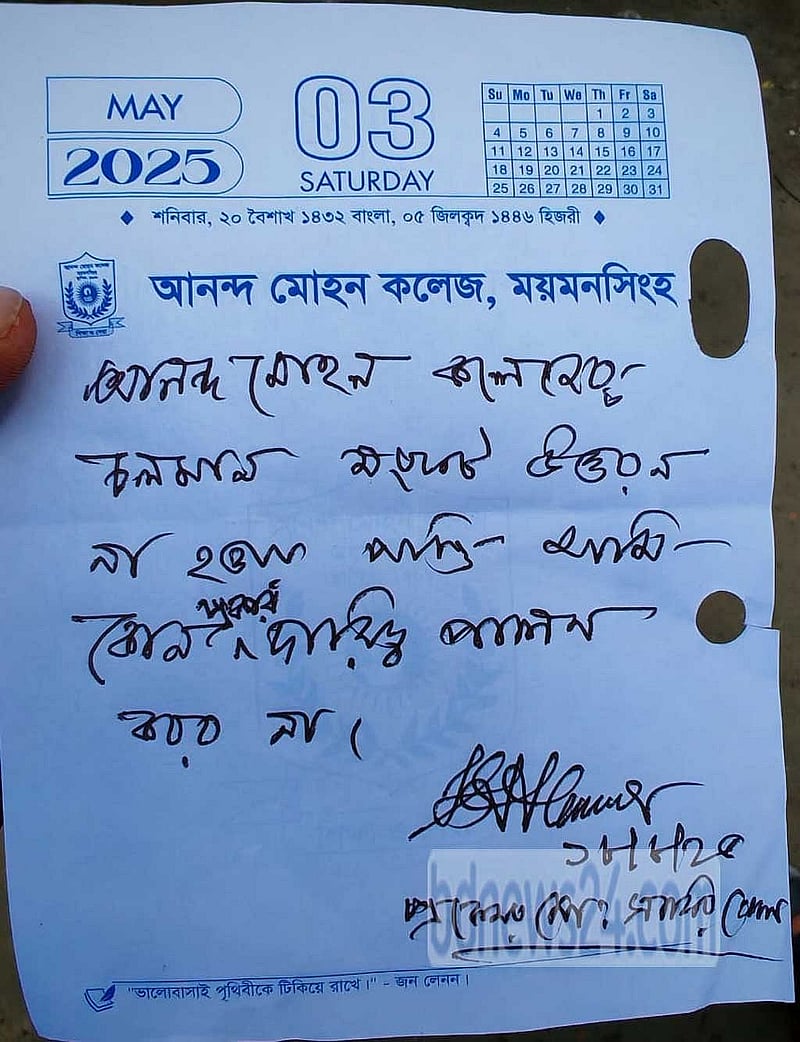 MAY
2025
03
SATURDAY
Su Mo Tu We Th Fr Sa
1 2 3
4 5 6 7 8 9 10
11 12 13 14 15 16 17
18 19 20 21 22 23 24
25 26 27 28 29 30 31
শনিবার, ২০ বৈশাখ ১৪৩২ বাংলা, ০৫ জিলক্বদ ১৪৪৬ হিজরী
আনন্দ মোহন কলেজ, ময়মনসিংহ
আনন্দ মোহন কলেজের
চলমান সংকট উত্তরন
না হওয়া পর্যন্ত আমি
কোন প্রকার দায়িত্ব পালন
করব না।
১৮/৮/২৫
প্রফেসর মোঃ সাকির হোসেন
bdnews24.com
"ভালোবাসাই পৃথিবীকে টিকিয়ে রাখে।" - জন লেনন।